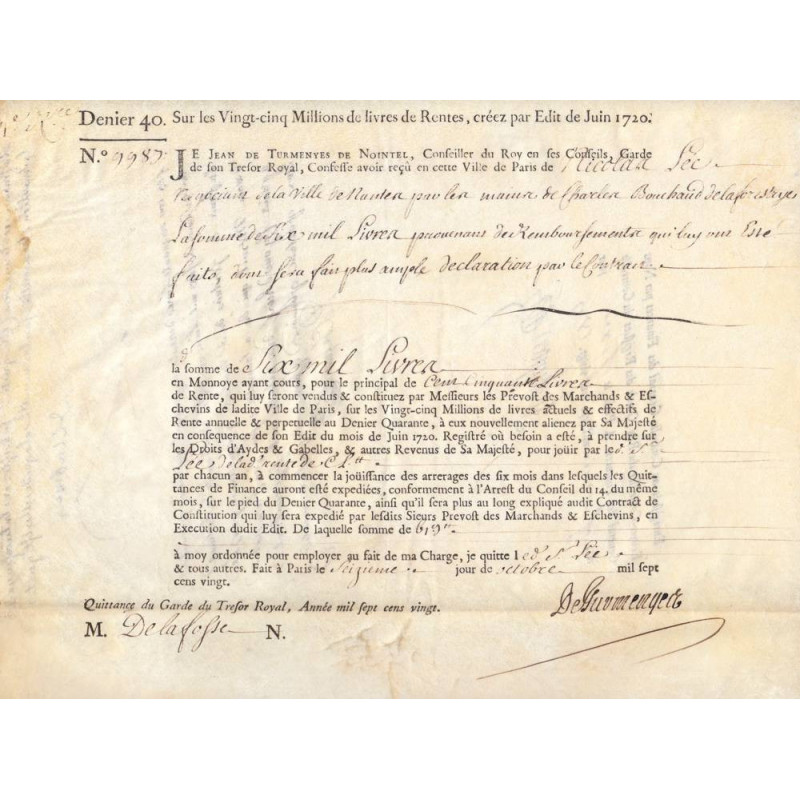 Denier 40. Sur les Vingt-cinq Millions de livres de Rentes, créez par Edit de Juin 1720.
N.º 9987 JE JEAN DE TURMENYES DE NOINTEL, Conseiller du Roy en ses Conseils, Garde
de son Tresor Royal, Confesse avoir reçû en cette Ville de Paris de Nicolas Lée
Negociant de la Ville de Nantes par les mains de Charles Bouchaud
La somme de Six mil Livres provenans de Remboursements qui luy ont Esté
faits, dont sera fait plus ample declaration par le Contrat
la somme de Six mil Livres
en Monnoye ayant cours, pour le principal de Cent Cinquante Livres
de Rente, qui luy seront vendus & constituez par Messieurs les Prevost des Marchands & Es-
chevins de ladite Ville de Paris, sur les Vingt-cinq Millions de livres actuels & effectifs de
Rente annuelle & perpetuelle au Denier Quarante, à eux nouvellement alienez par Sa Majesté
en consequence de son Edit du mois de Juin 1720. Registré où besoin a esté, à prendre sur
les Droits d'Aydes & Gabelles, & autres Revenus de Sa Majesté, pour joüir par led. S.
Lée de lad. rente de CL tt
par chacun an, à commencer la joüissance des arrerages des six mois dans lesquels les Quit-
tances de Finance auront esté expediées, conformement à l'Arrest du Conseil du 14. du même
mois, sur le pied du Denier Quarante, ainsi qu'il sera plus au long expliqué audit Contract de
Constitution qui luy sera expedié par lesdits Sieurs Prevost des Marchands & Eschevins, en
Execution dudit Edit. De laquelle somme de
à moy ordonnée pour employer au fait de ma Charge, je quitte led. S. Lée
& tous autres. Fait à Paris le Seizieme jour de octobre mil sept
cens vingt.
Quittance du Garde du Tresor Royal, Année mil sept cens vingt.
DeTurmenyes
M. Delafosse N.